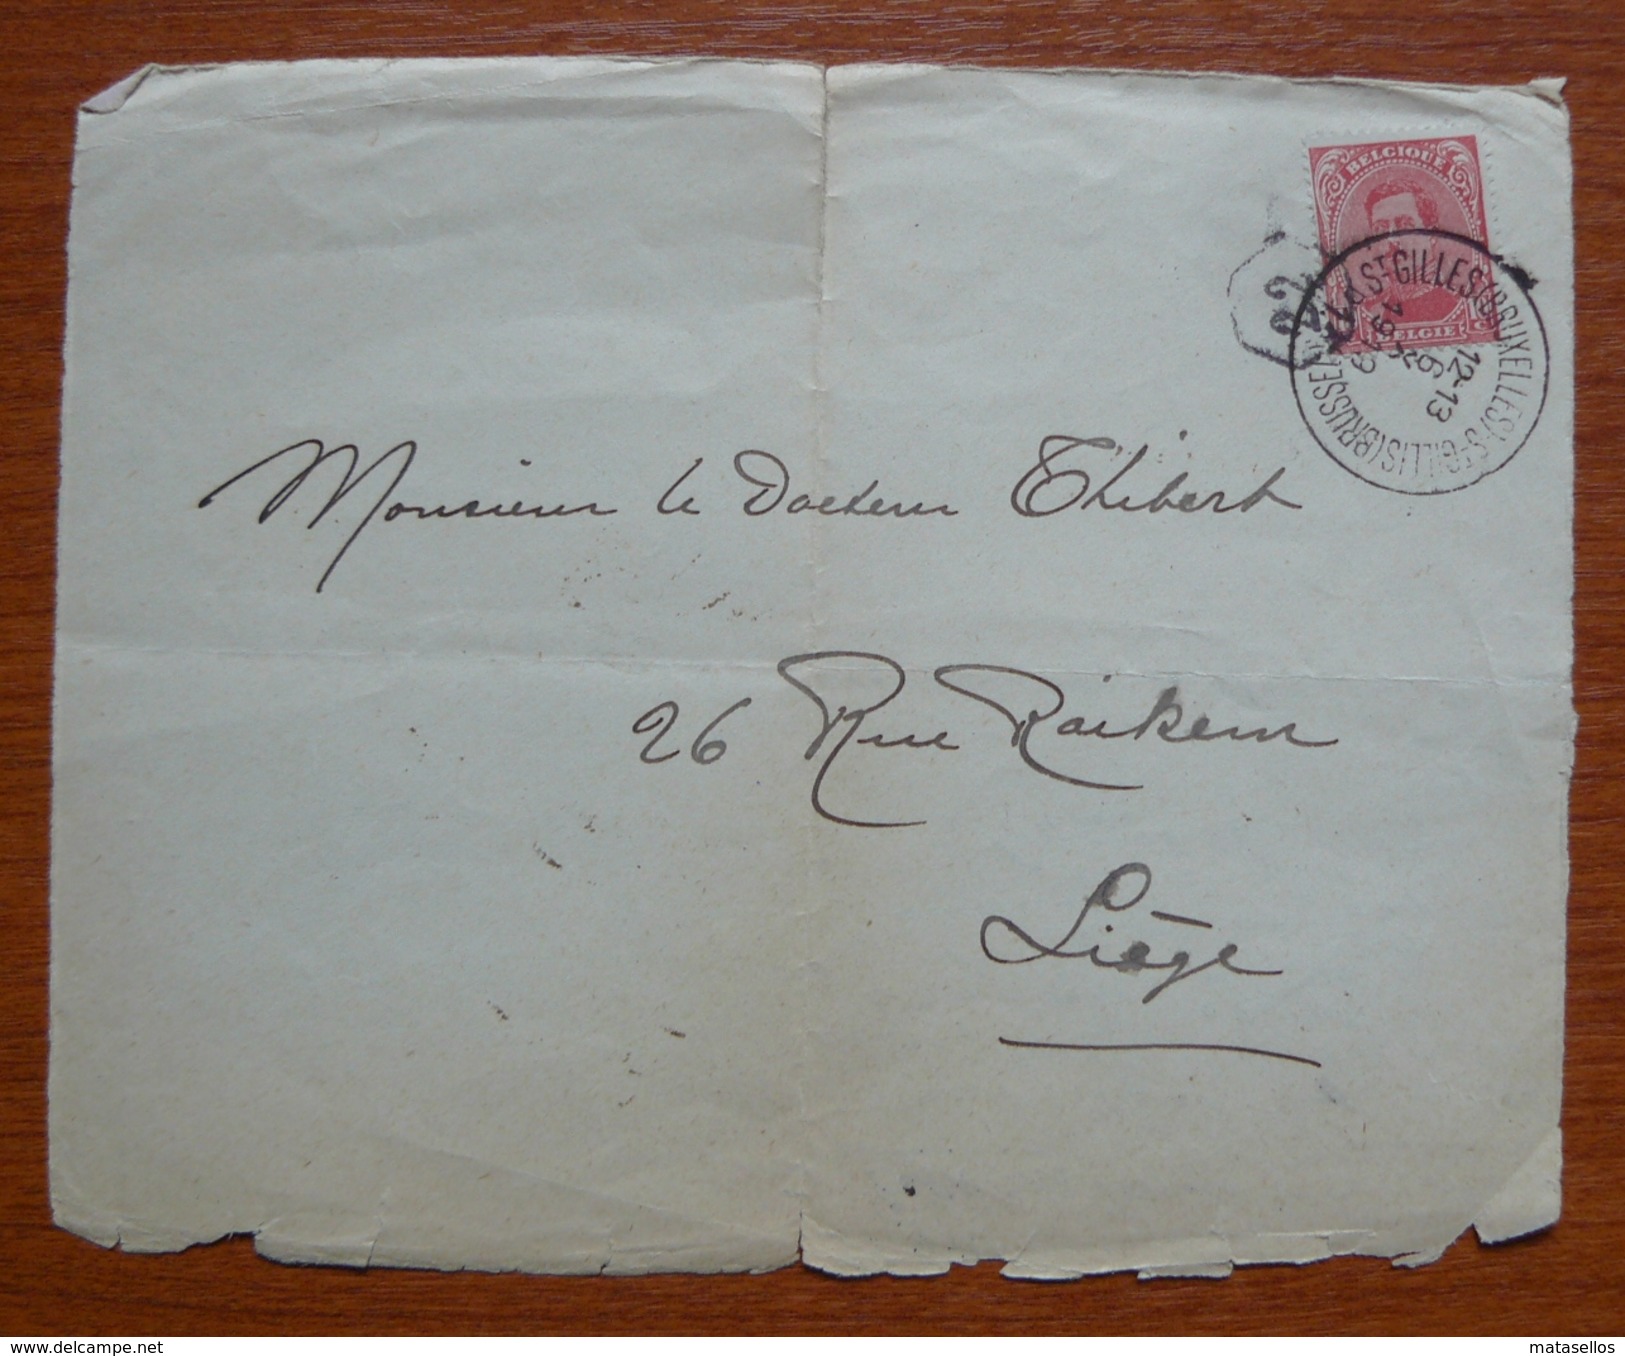 BELGIQUE
BELGIE
ST GILLES (BRUXELLES) ST GILLIS (BRUSSEL)
12-13
1919
22
Monsieur le Docteur Thibert
26 Rue Raikem
Liège
matasellos